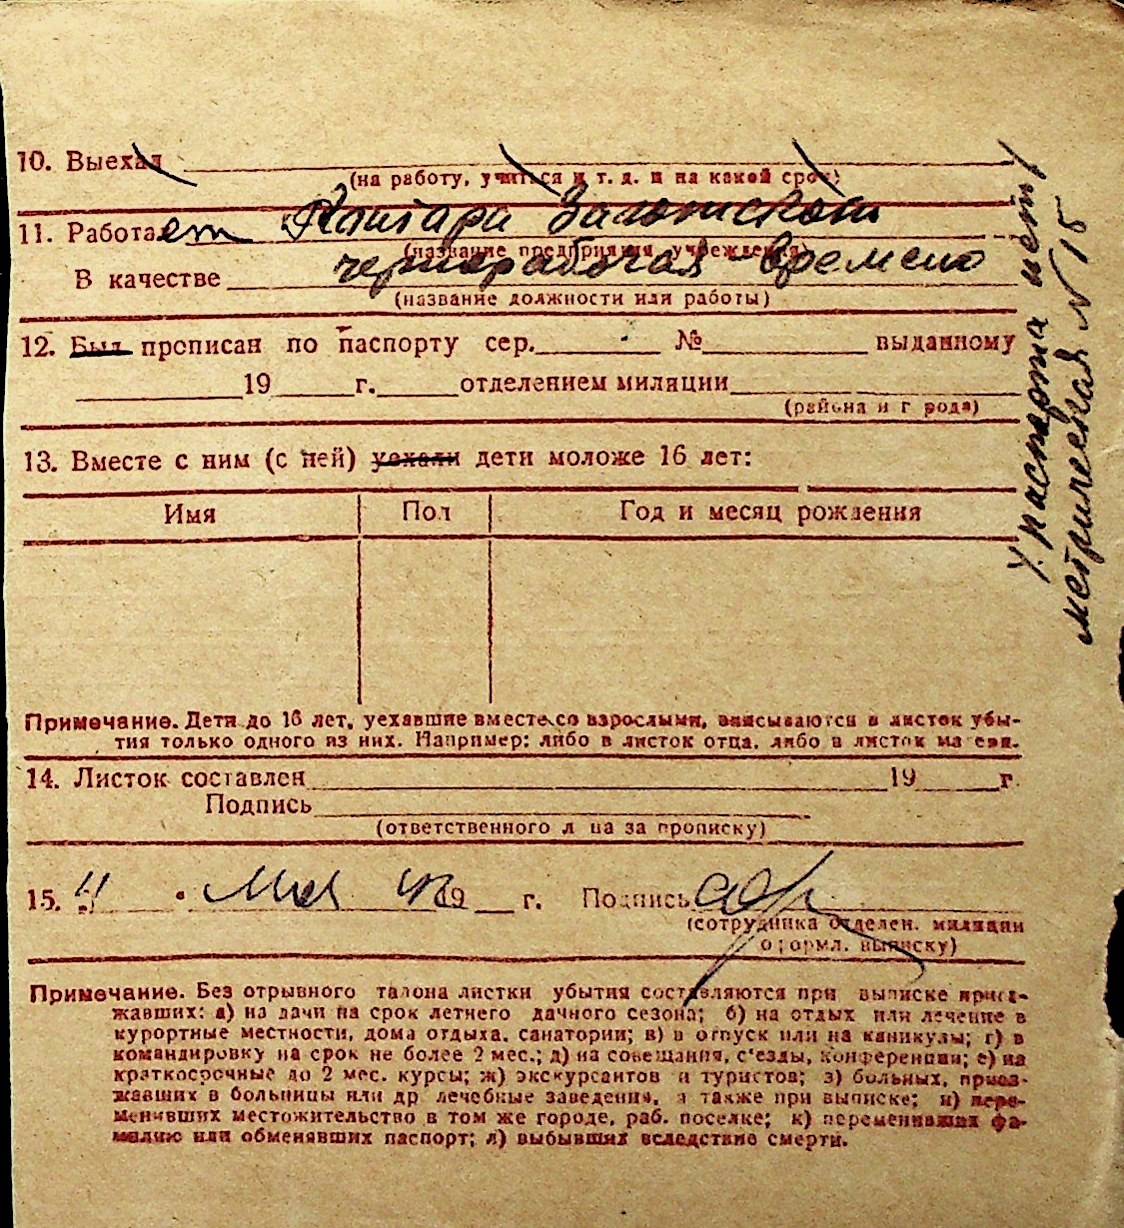 10. Выехал
(на работу, учиться и т. д. и на какой срок)
11. Работает
(название предприятия, учреждения)
В качестве чернорабочая времено
(название должности или работы)
12. Был прописан по паспорту сер. № выданному
19 г. отделением милиции
(района и города)
13. Вместе с ним (с ней) уехали дети моложе 16 лет:
Имя Пол Год и месяц рождения
Примечание. Дети до 16 лет, уехавшие вместе со взрослыми, вписываются в листок убы-
тия только одного из них. Например: либо в листок отца, либо в листок матери.
14. Листок составлен 19 г.
Подпись
(ответственного лица за прописку)
15. 11 Мая 19 г. Подпись
(сотрудника отделен. милиции
оформл. выписку)
Примечание. Без отрывного талона листки убытия составляются при выписке приез-
жавших: а) на дачи на срок летнего дачного сезона; б) на отдых или лечение в
курортные местности, дома отдыха, санатории; в) в отпуск или на каникулы; г) в
командировку на срок не более 2 мес.; д) на совещания, с'езды, конференции; е) на
краткосрочные до 2 мес. курсы; ж) экскурсантов и туристов; з) больных, приез-
жавших в больницы или др лечебные заведения, а также при выписке; и) пере-
менивших местожительство в том же городе, раб. поселке; к) переменивших фа-
милию или обменявших паспорт; л) выбывших вследствие смерти.
паспорта нет
метрическая N 15